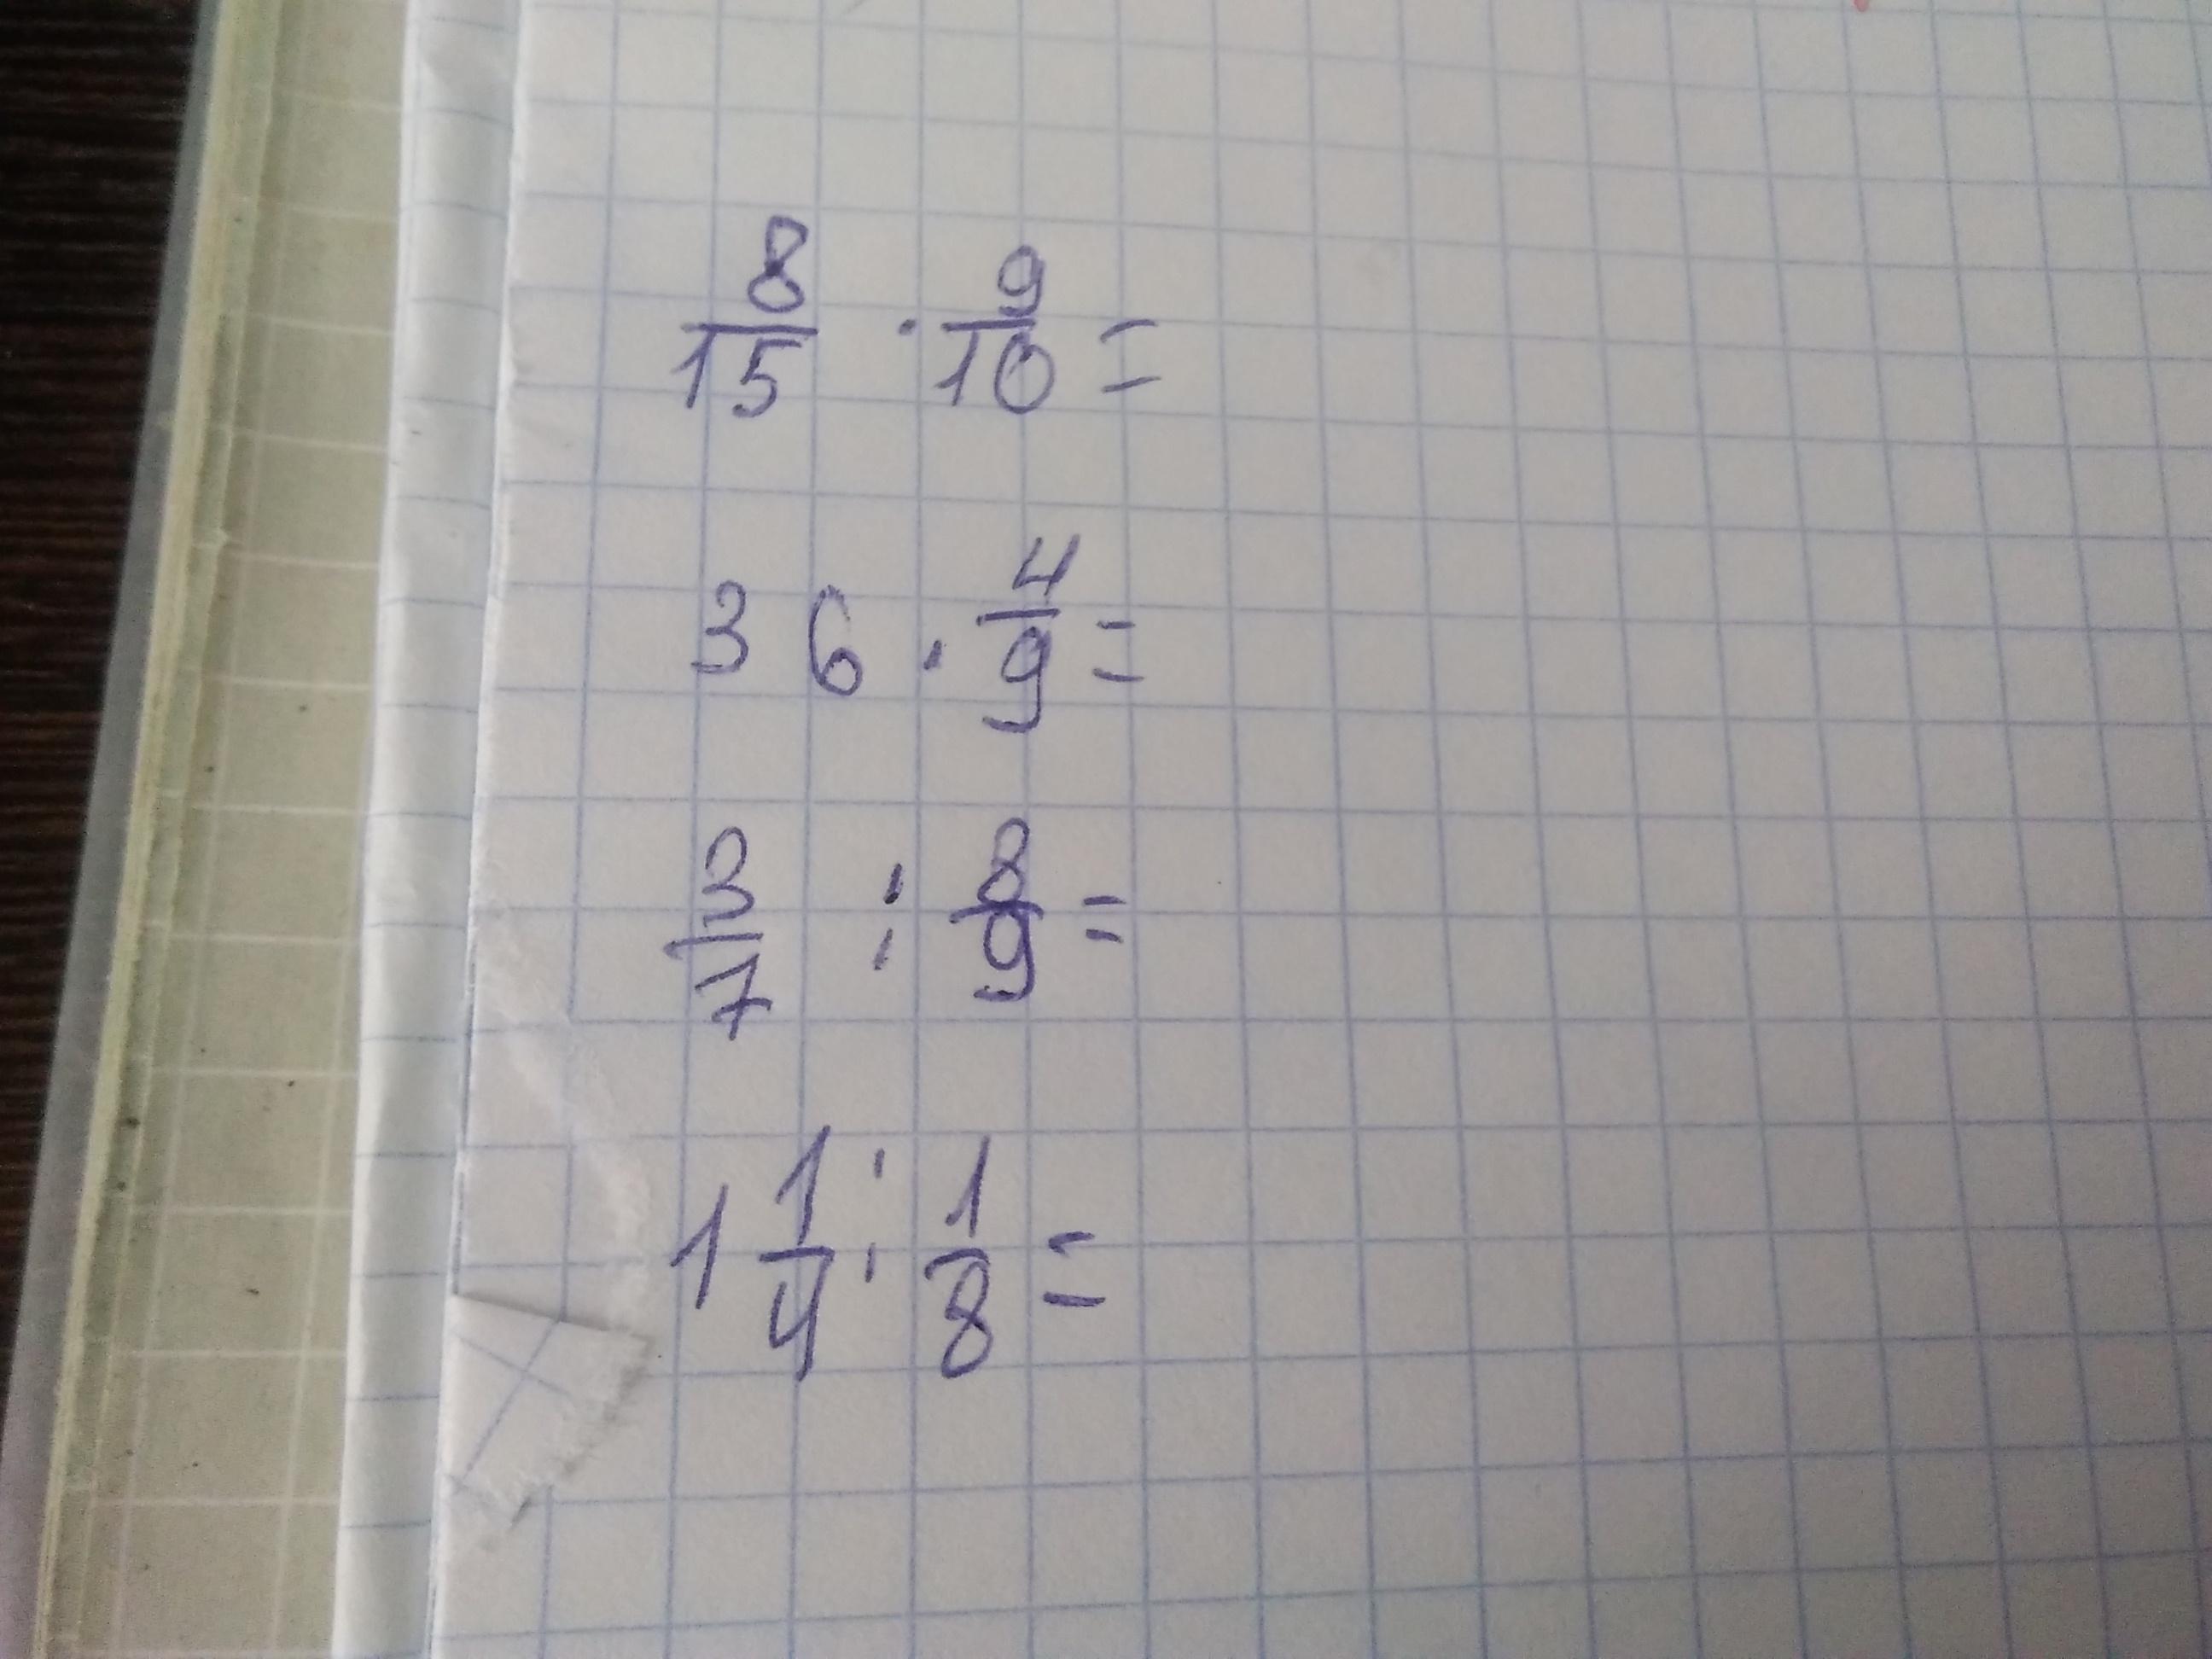 8/15 · 9/10 =
36 · 4/9 =
3/7 : 8/9 =
1 1/4 : 1/8 =